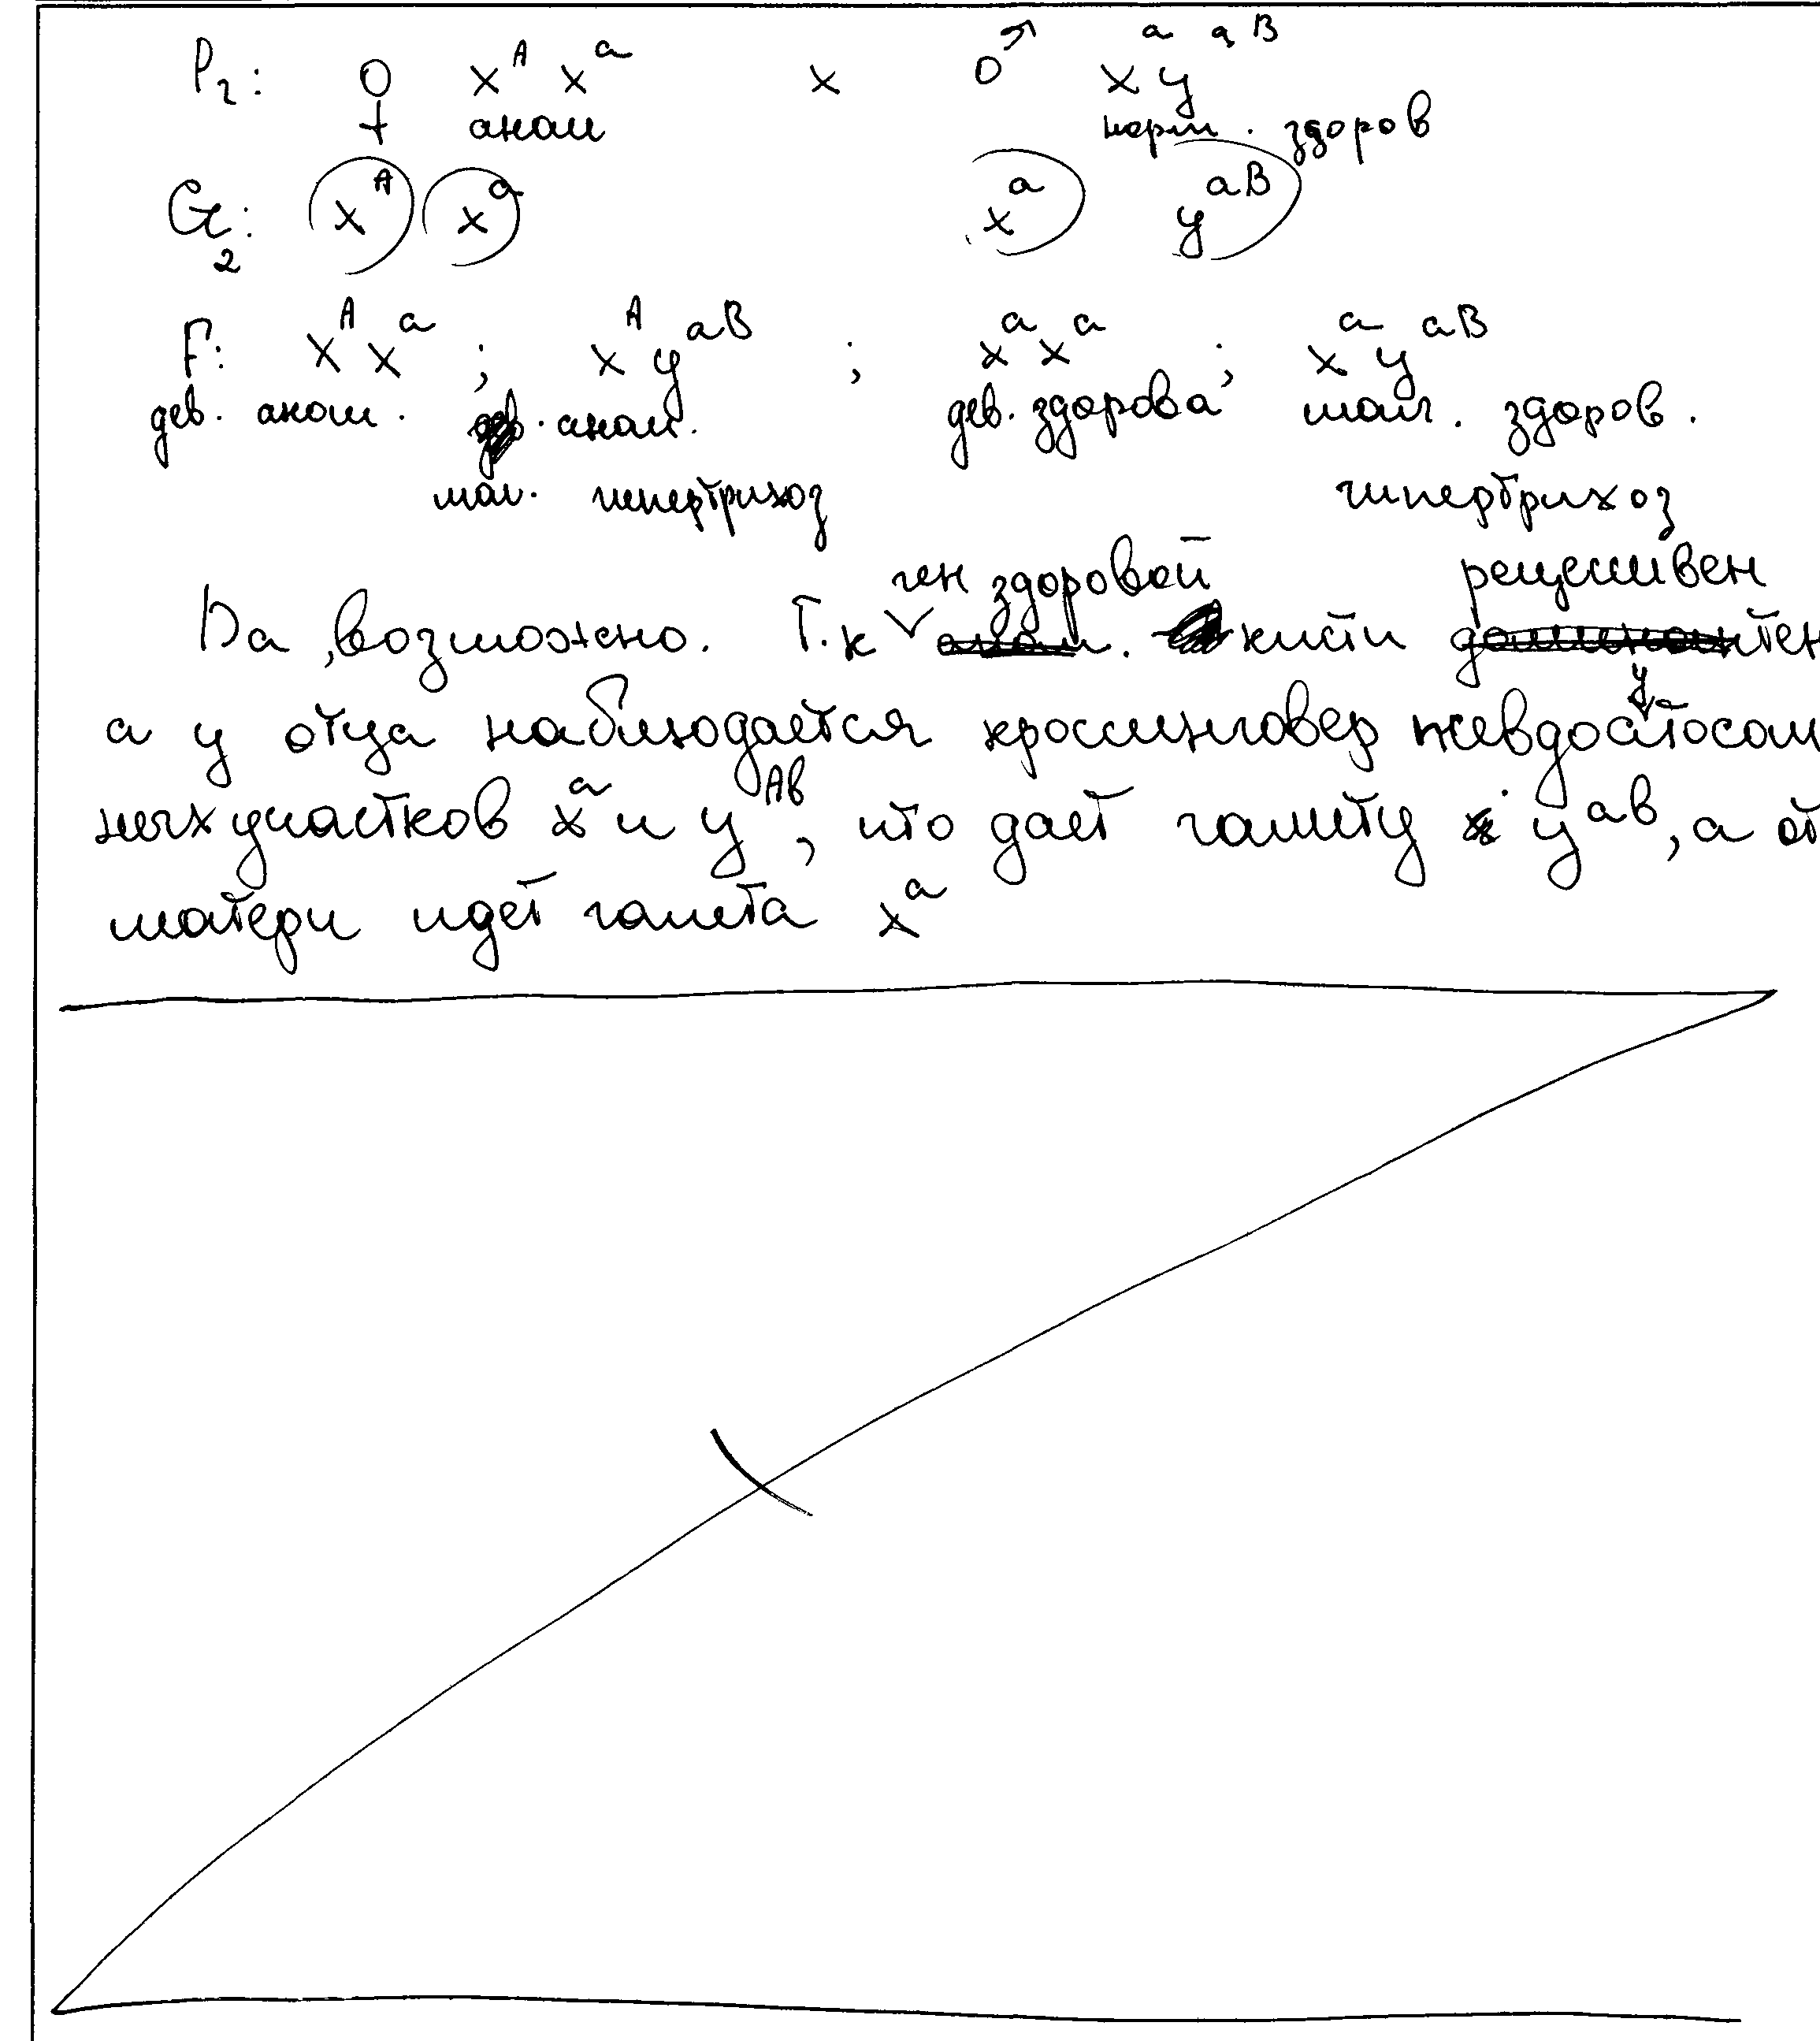 P₂: ♀ xᴬ xᵃ x ♂ xᵃ yᵃᴮ
аном норм. здоров
G₂: xᴬ xᵃ xᵃ yᵃᴮ
F: xᴬ xᵃ ; xᴬ yᵃᴮ ; xᵃ xᵃ ; xᵃ yᵃᴮ
дев. аном. аном. дев. здорова мал. здоров.
мал. гипертрихоз гипертрихоз
ген здоровой рецессивен
Да, возможно. Т.к аном. кисти доминантен
а у отца наблюдается кроссинговер псевдоаутосом
ных участков xᵃ и yᴬᵇ, что дает гамету yᵃᵇ, а от
матери идет гамета xᵃ